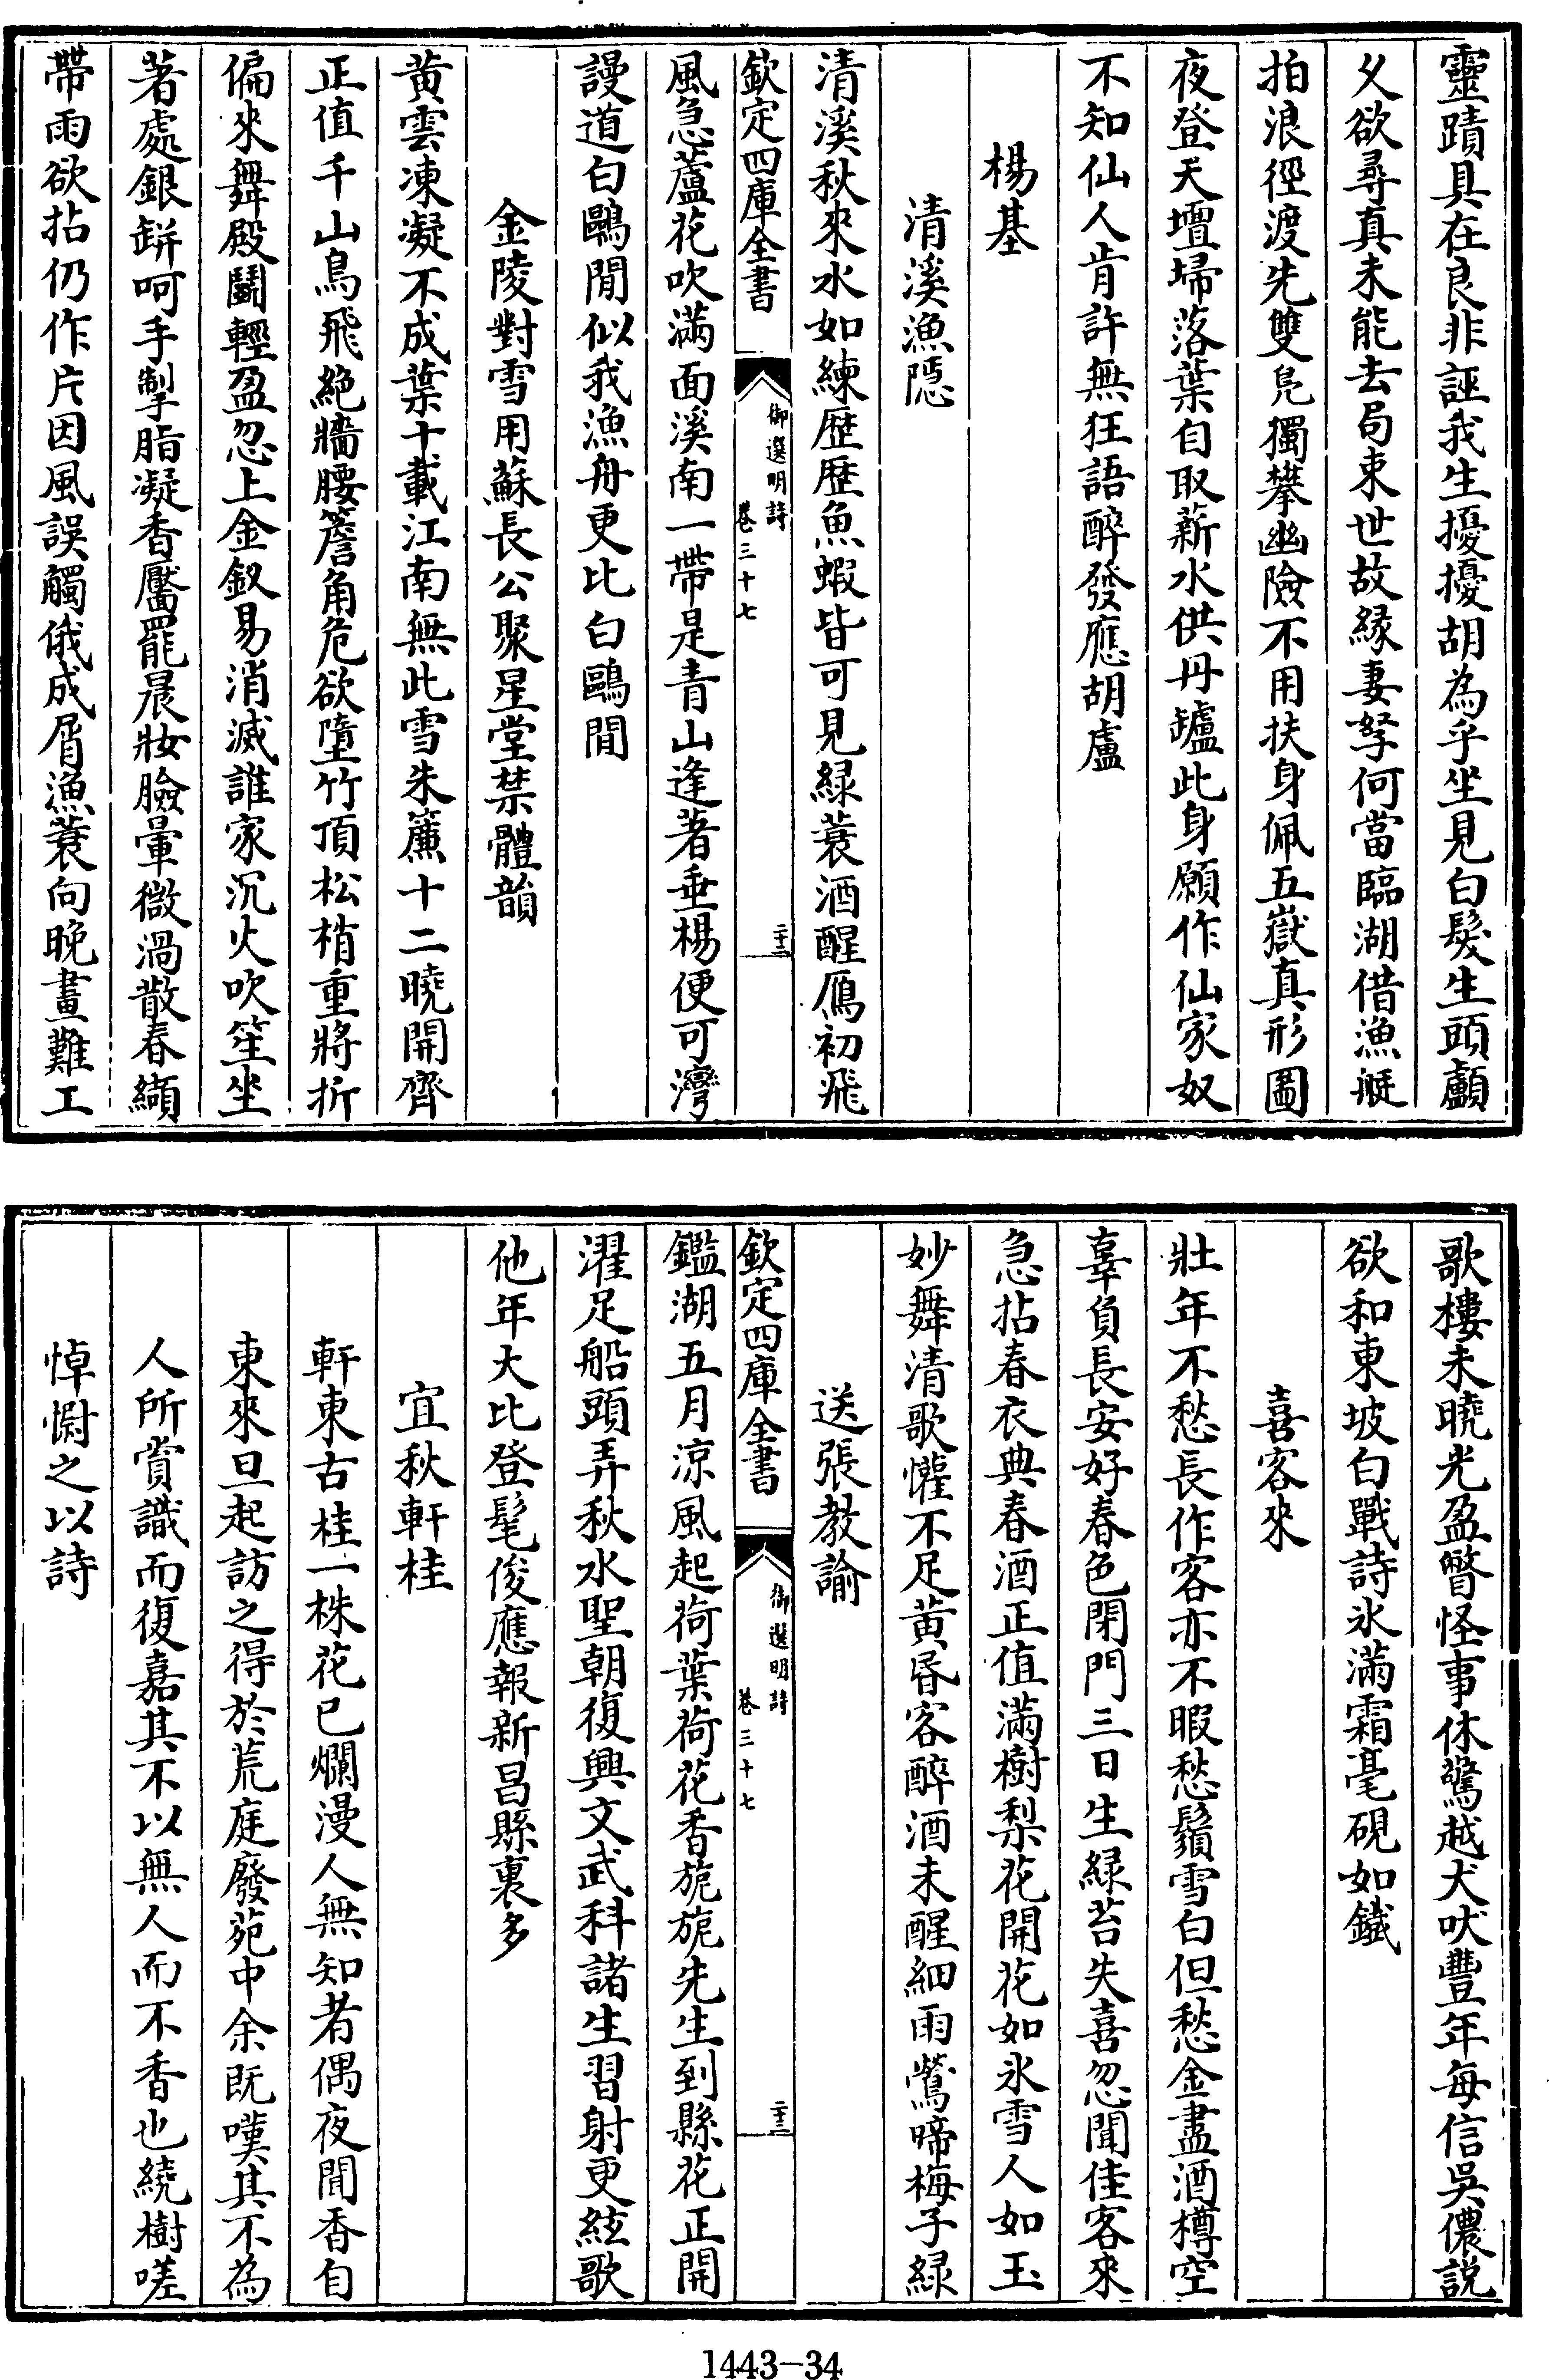 靈蹟具在良非誣我生擾擾胡為乎坐見白髮生頭顱
夊欲尋真未能去局束世故縁妻孥何當臨湖借漁艇
拍浪徑渡先雙鳬獨攀幽險不用扶身佩五嶽真形圖
夜登天壇埽落葉自取薪水供丹罏此身願作仙家奴
不知仙人肯許無狂語醉發應胡盧
楊基
清溪漁隱
清溪秋來水如練歴歴魚蝦皆可見緑蓑酒醒鴈初飛
欽定四庫全書
御選明詩
卷三十七
二十二
風急蘆花吹滿面溪南一帶是青山逢著垂楊便可灣
謾道白鷗閒似我漁舟更比白鷗閒
金陵對雪用蘇長公聚星堂禁體韻
黄雲凍凝不成葉十載江南無此雪朱簾十二曉開齊
正值千山鳥飛絶牆腰簷角危欲墮竹頂松梢重將折
偏來舞殿鬬輕盈忽上金釵易消滅誰家沉火吹笙坐
著處銀缾呵手掣脂凝香靨罷晨妝臉暈微渦散春纈
帶雨欲拈仍作片因風誤觸俄成屑漁蓑向晚畫難工
歌樓未曉光盈瞥怪事休驚越犬吠豐年每信吳儂説
欲和東坡白戰詩氷滿霜毫硯如鐵
喜客來
壯年不愁長作客亦不暇愁鬚雪白但愁金盡酒樽空
辜負長安好春色閉門三日生緑苔失喜忽聞佳客來
急拈春衣典春酒正值滿樹梨花開花如氷雪人如玉
妙舞清歌懽不足黄昏客醉酒未醒細雨鶯啼梅子緑
送張教諭
欽定四庫全書
御選明詩
卷三十七
二十三
鑑湖五月凉風起荷葉荷花香旎旎先生到縣花正開
濯足船頭弄秋水聖朝復興文武科諸生習射更絃歌
他年大比登髦俊應報新昌縣裏多
宜秋軒桂
軒東古桂一株花已爛漫人無知者偶夜聞香自
東來旦起訪之得於荒庭廢苑中余既嘆其不為
人所賞識而復嘉其不以無人而不香也繞樹嗟
悼惆之以詩
1443-34